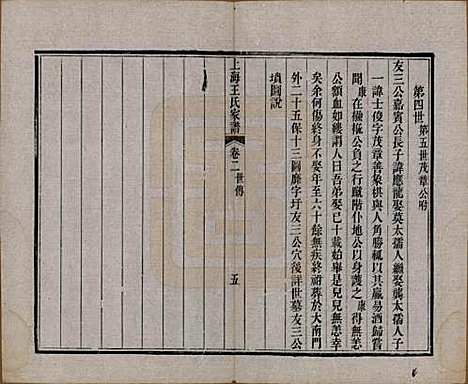 第四世 第五世茂章公附
友三公嘉賓公長子諱應龍娶莫太孺人繼娶龔太孺人子
一諱士俊字茂章善象棋與人角勝輒以其贏易酒歸嘗
聞 康在襁褓公負之行蹴階仆地公以身護之 康得無恙
公額血如縷謂人曰吾弟娶已十載始舉是兒兒無恙幸
矣余何傷終身不娶年至六十餘無疾終祔葬於大南門
外二十五保十三圖靡字圩友三公穴後詳世墓友三公
墳圖說
上海王氏家譜
卷二 世傳
五